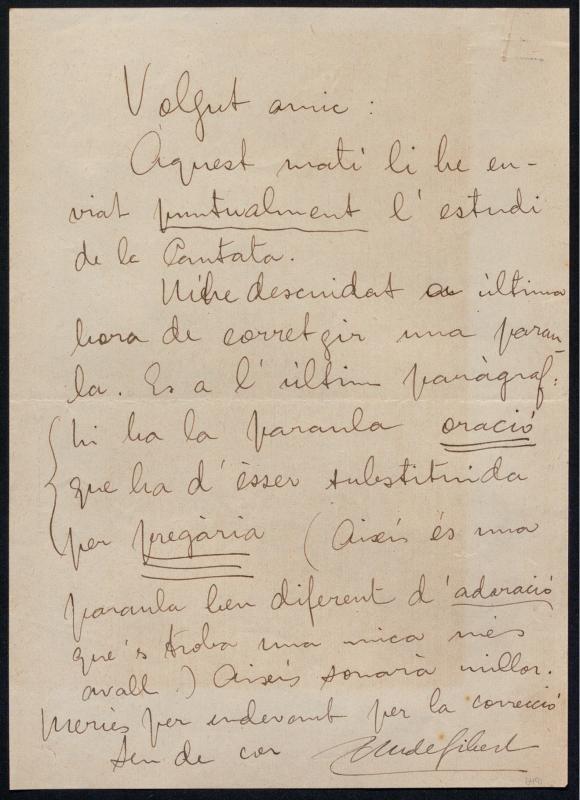 Volgut amic:
Aquest matí li he en-
viat puntualment l'estudi
de la Cantata.
M'he descuidat a última
hora de corretgir una parau-
la. Es a l'últim paràgraf:
hi ha la paraula oració
que ha d'ésser substituida
per pregària (Aixís és una
paraula ben diferent d'adoració
que's troba una mica més
avall.) Aixís sonarà millor.
Mercès per endevant per la correcció
Seu de cor